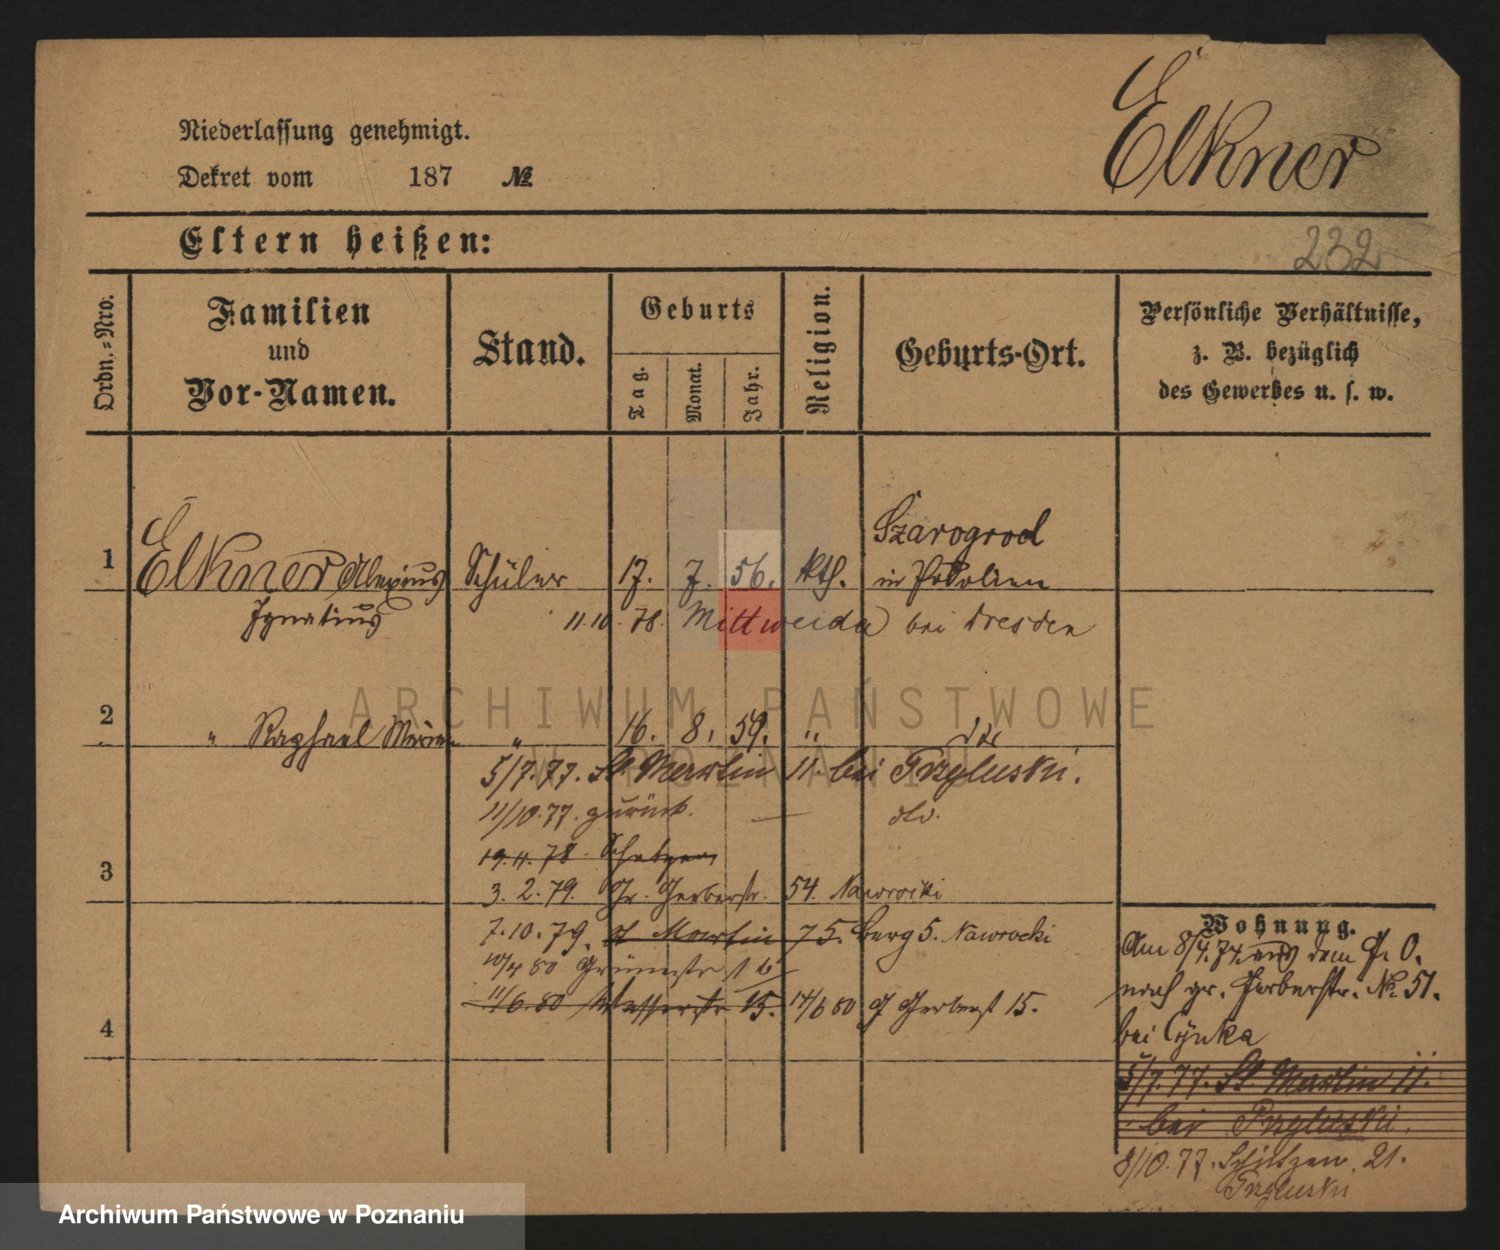 Elkner
Niederlassung genehmigt.
Dekret vom 187 №
Eltern heißen:
232
Ordn.-Nro.
Familien
und
Vor-Namen.
Stand.
Geburts
Tag.
Monat.
Jahr.
Religion.
Geburts-Ort.
Persönliche Verhältnisse,
z. B. bezüglich
des Gewerbes u. s. w.
1 Elkner Alexius Schüler 17. 7. 56. kth. Szarogrod
in Podolien
Ignatius 11.10.78. Mittweida bei Dresden
2 " Raphael " 16. 8. 59. "
5/7.77. St Martin 11. bei Przyluski.
11/10.77. zurück.
19.11.78
3 3. 2. 79. Gr. Gerberstr. 54. Nawrocki
7.10.79. St Martin 75. Berg 5. Nawrocki
10/4 80 Grünestr 6
11/6.80 Wasserstr 15. 14/6 80 G Gerberst 15.
4
Wohnung.
Am 8/4.74. aus dem P. O.
nach gr. Gerberstr. № 51.
bei Cynka
5/7.77. St Martin 11.
bei Przyluski.
8/10.77. Schützen 21.
Przyluski
ARCHIWUM PAŃSTWOWE
W POZNANIU
Archiwum Państwowe w Poznaniu